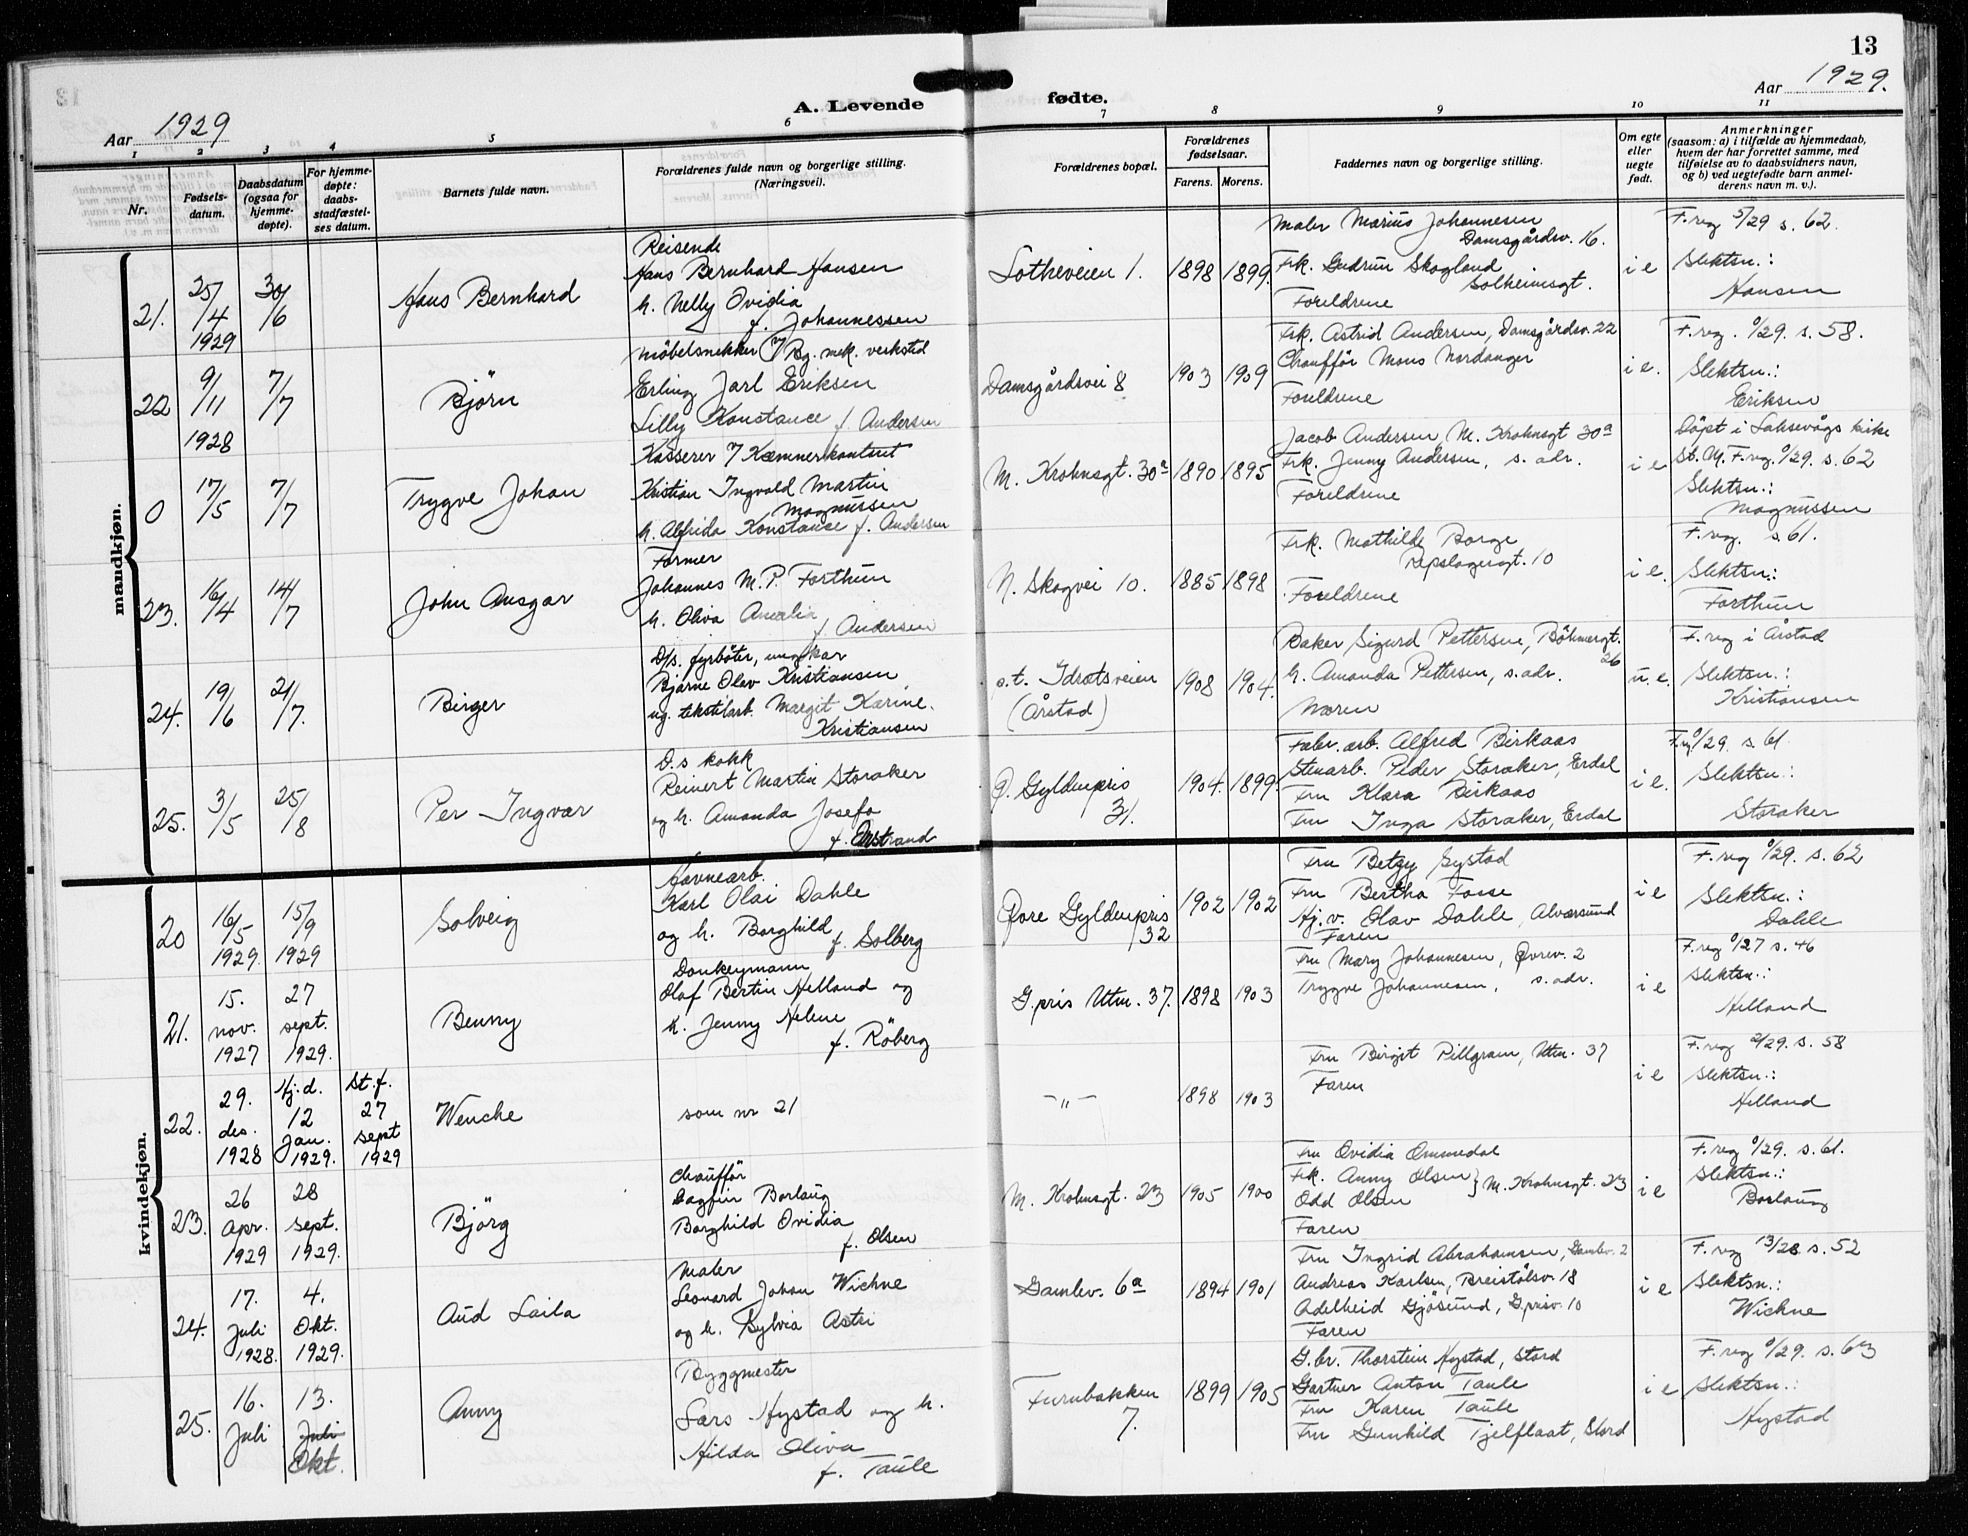 13
Aar 1929
Aar 1929.
A. Levende fødte.
1 2 3 4 5 6 7 8 9 10 11
Nr.
Fødsels-
datum.
Daabsdatum
(ogsaa for
hjemme-
døpte).
For hjemme-
døpte:
daabs-
stadfæstel-
ses datum.
Barnets fulde navn.
Forældrenes fulde navn og borgerlige stilling.
(Næringsvei).
Forældrenes bopæl.
Forældrenes
fødselsaar.
Farens. Morens.
Faddernes navn og borgerlige stilling.
Om egte
eller
uegte
født.
Anmerkninger
(saasom: a) i tilfælde av hjemmedaab,
hvem der har forrettet samme, med
tilføielse av to daabsvidners navn,
og b) ved uegtefødte barn anmel-
derens navn m. v.).
mandkjøn.
21.
25/4
1929
30/6
Hans Bernhard
Reisende
Hans Bernhard Hansen
h. Nelly Ovidia
f. Johannessen
Lotheveien 1.
1898 1899.
Maler Marius Johannesen
Damsgårdsv. 16.
Frk. Gudrun Skogland
Solheimsgt.
Foreldrene
i e
F. reg 5/29 s. 62.
Slektsn.:
Hansen
22
9/11
1928
7/7
Björn
Möbelsnekker v/ Bg. mek. verksted
Erling Jarl Eriksen
Lilly Konstance f. Andersen
Damsgårdsvei 8
1903 1909
Frk. Astrid Andersen, Damsgårdsv. 22
Chaufför Mons Nordanger
Foreldrene
i e.
F. reg. 0/29. s. 58.
Slektsn.:
Eriksen
0
17/5
7/7
Trygve Johan
Kasserer v/ Kæmnerkontoret
Kristian Ingvald Martin
Magnussen
h. Alfrida Konstance f. Andersen
M. Krohnsgt. 30a
1890 1895
Jacob Andersen, M. Krohnsgt 30a
Frk. Jenny Andersen, s. adr.
Foreldrene
i e
Döpt i Laksevågs kirke
St. M. F. reg. 0/29. s. 62
Slektsn.:
Magnussen
23.
16/4
14/7
John Ansgar
Former
Johannes M. P. Forthun
h. Oliva Amalia
f. Andersen
N. Skogvei 10.
1885 1898
Frk. Mathilde Borge
Repslagergt. 10
Foreldrene
i e.
F. reg. s. 61.
Slektsn.:
Forthun
24.
19/6
21/7.
Birger
D/s. fyrböter, ungkar
Bjarne Olav Kristiansen
ug. tekstilarb. Margit Karine.
Kristiansen
s. t. Idrætsveien
(Årstad)
1908 1904.
Baker Sigurd Pettersen, Böhmergt.
26
h. Amanda Pettersen, s. adr.
Moren
u. e.
F. reg i Årstad
Slektsn.:
Kristiansen
25.
3/5
25/8
Per Ingvar
D.s kokk
Reinert Martin Storaker
og h. Amanda Josefa
f. Onstrand
Ø. Gyldenpris
31.
1904. 1899.
Fabr. arb. Alfred Birkaas
Stenarb. Peder Storaker, Erdal
Fru Klara Birkaas
Fru Inga Storaker, Erdal
i e.
F. reg 0/29. s. 61.
Slektsn.:
Storaker
kvindekjøn.
20
16/5
1929.
15/9
1929
Solveig
Havnearb.
Karl Olai Dahle
og h. Borghild
f. Solberg
Øvre Gyldenpris
32
1902 1902
Fru Betzy Gystad
Fru Bertha Fosse
Hj. v. Olav Dahle, Alversund
Faren
i e
F. reg 0/29. s. 62
Slektsn.:
Dahle
21.
15.
nov.
1927
27
sept.
1929.
Benny
Donkeymann
Olaf Bertin Helland og
h. Jenny Helene
f. Röberg
G.pris Utm. 37.
1898 1903
Fru Mary Johannesen, Øvrev. 2
Trygve Johannesen, s. adr.
i e
F. reg 0/27 s. 46
Slektsn.:
Helland
22.
29.
des.
1928
Hj. d.
12
Jan.
1929.
St. f.
27
sept
1929
Wenche
som nr 21
— " —
1898 1903
Fru Birgit Pillgram, Utm. 37
Faren
i e
F. reg 2/29. s. 58
Slektsn.:
Helland
23.
26
Apr.
1929
28
sept.
1929.
Björg
Chaufför
Dagfin Borlaug
Borghild Ovidia
f. Olsen
M. Krohnsgt. 23
1905 1900
Fru Ovidia Ommedal
Frk. Anny Olsen } M. Krohnsgt. 23
Odd Olsen
Faren
i e
F. reg 0/29. s. 61.
Slektsn.:
Borlaug
24.
17.
Juli
1928.
4.
Okt.
1929.
Aud Laila
Maler
Leonard Johan Wichne
og h. Sylvia Astri
Gamlev. 6a
1894 1901
Fru Ingrid Abrahamsen, Gamlev. 2
Andreas Karlsen, Breistölsv. 18
Adelheid Gjösund, G.prisv. 10
Faren
i e
F. reg 13/28 s. 52
Slektsn.:
Wichne
25.
16.
Juli
13.
Juli
Okt.
Anny
Byggmester
Lars Nystad og h.
Hilda Oliva
f. Taule
Furubakken
7.
1899 1905
G.br. Thorstein Nystad, Stord
Gartner Anton Taule
Fru Karen Taule
Fru Gunhild Tjelflaat, Stord
i e
F. reg 0/29. s. 63
Slektsn.:
Nystad